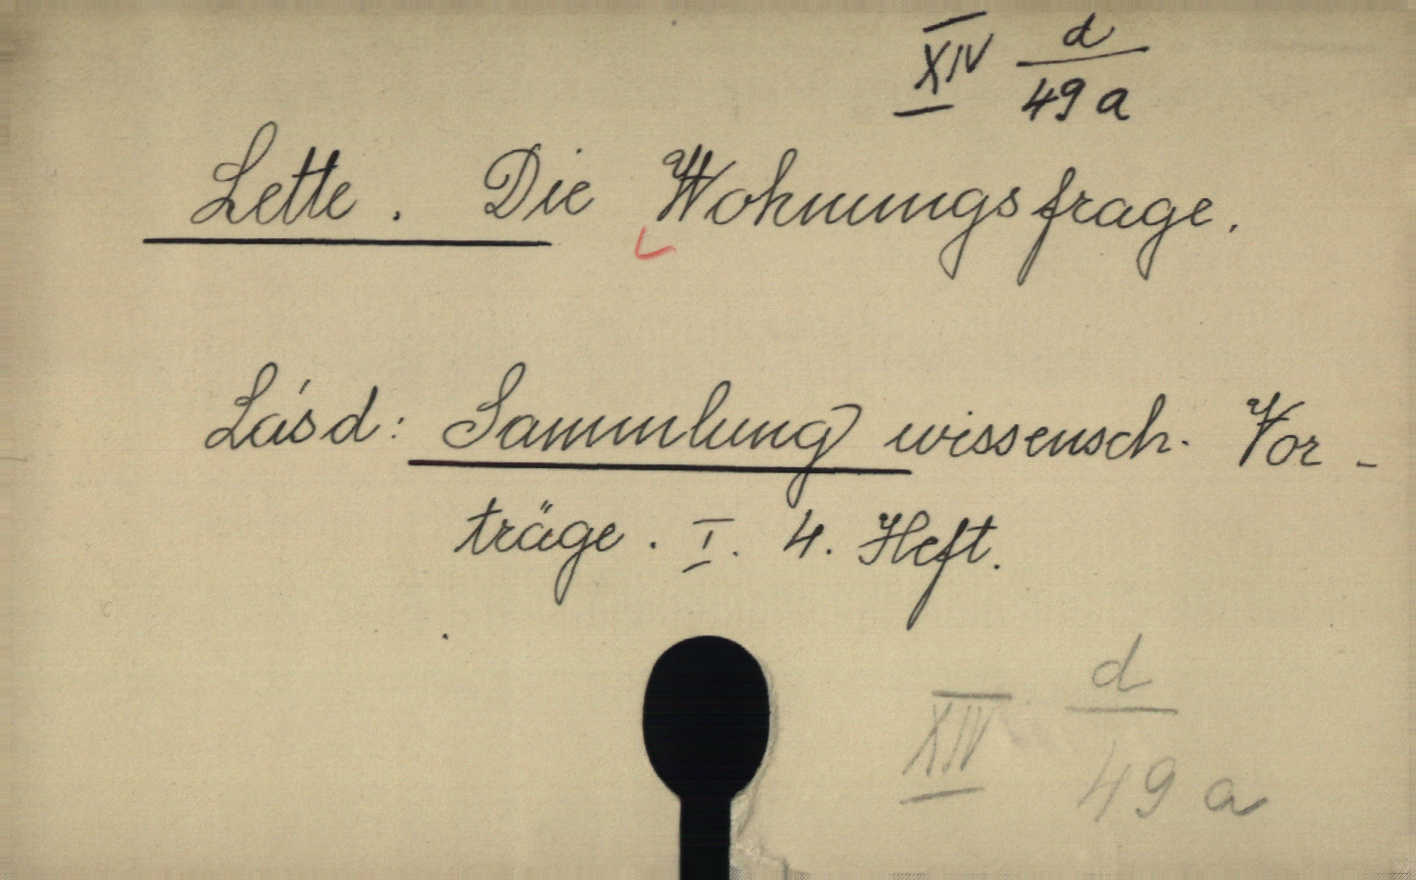 XIV d
49 a
Lette. Die Wohnungsfrage.
Lásd: Sammlung wissensch. Vor-
träge. I. 4. Heft.
XIV d
49 a